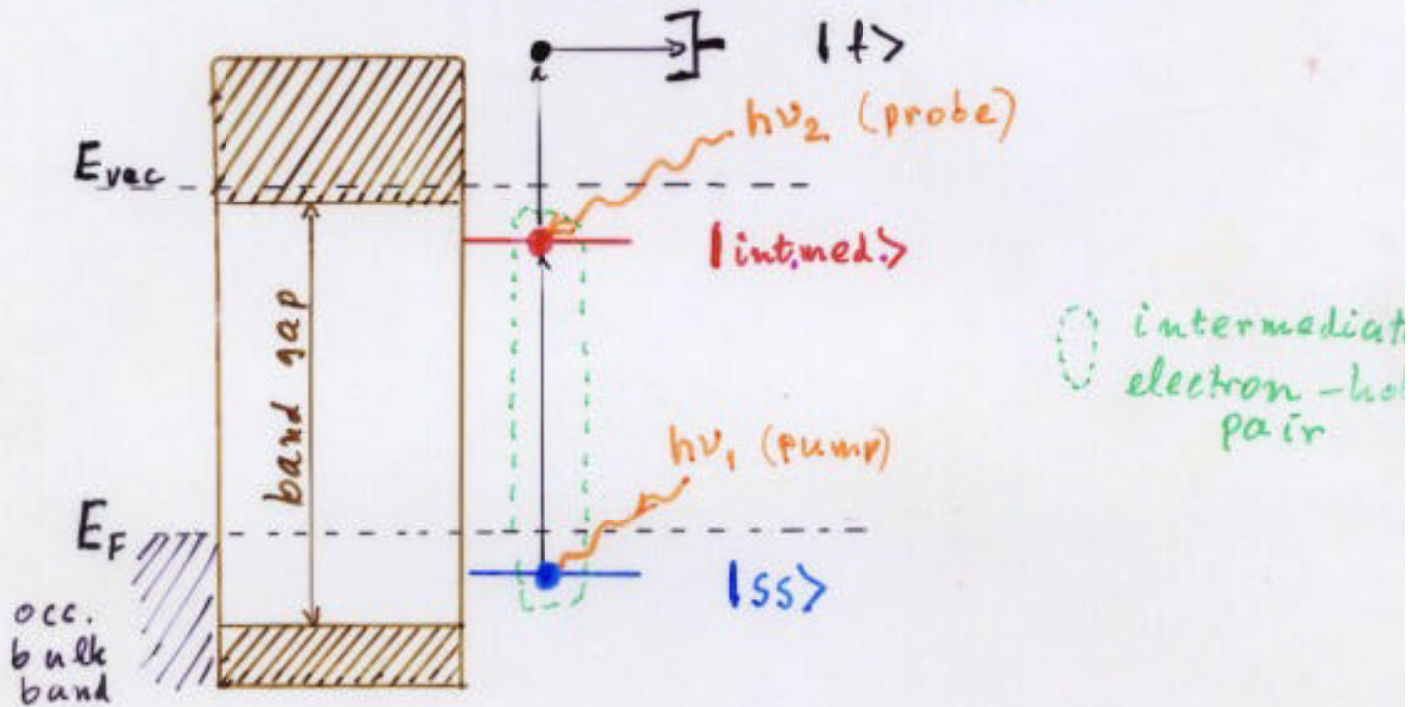 |f>
hν₂ (probe)
E_vac
|int.med.>
band gap
intermediat
electron-hol
pair
hν₁ (pump)
E_F
|ss>
occ.
bulk
band